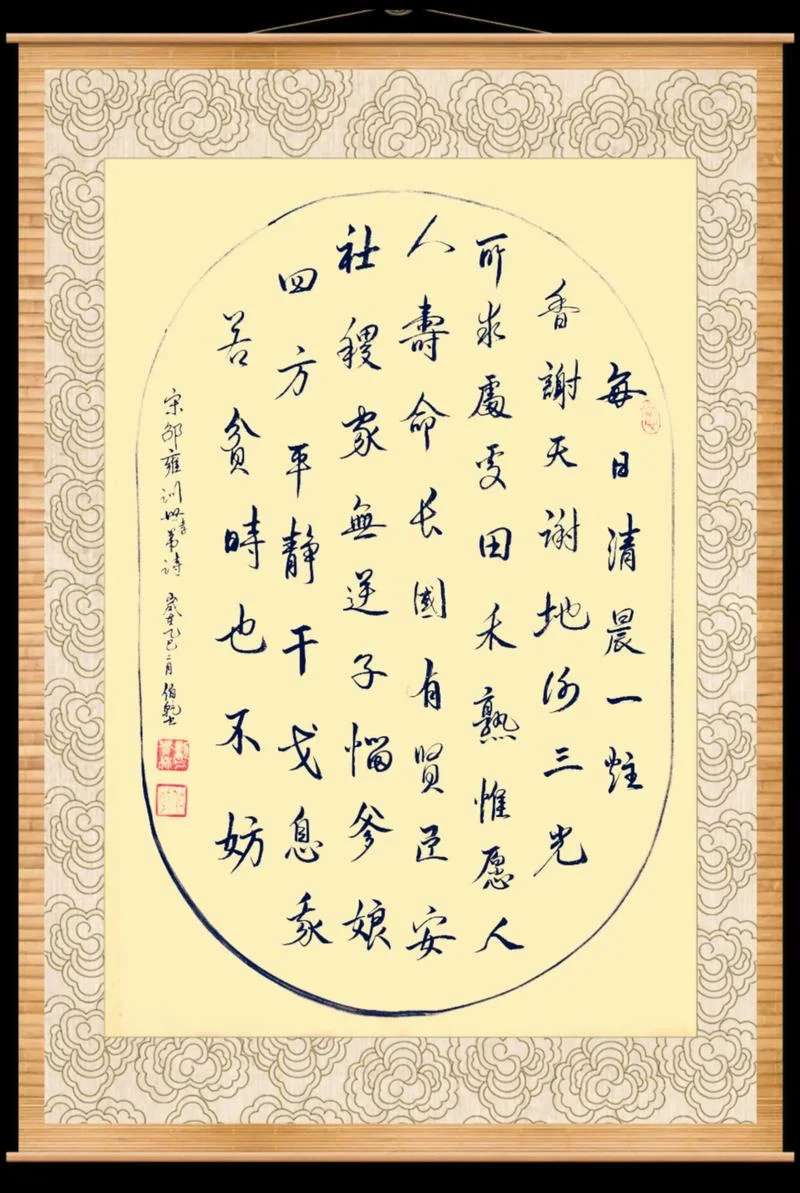 每日清晨一炷
香謝天谢地谢三光
所求處處田禾熟惟愿人
人壽命长國有賢臣安
社稷家無逆子惱爹娘
四方平靜干戈息我
若貧時也不妨
宋邵雍训世孝弟诗 歲在乙巳二月伯乾书